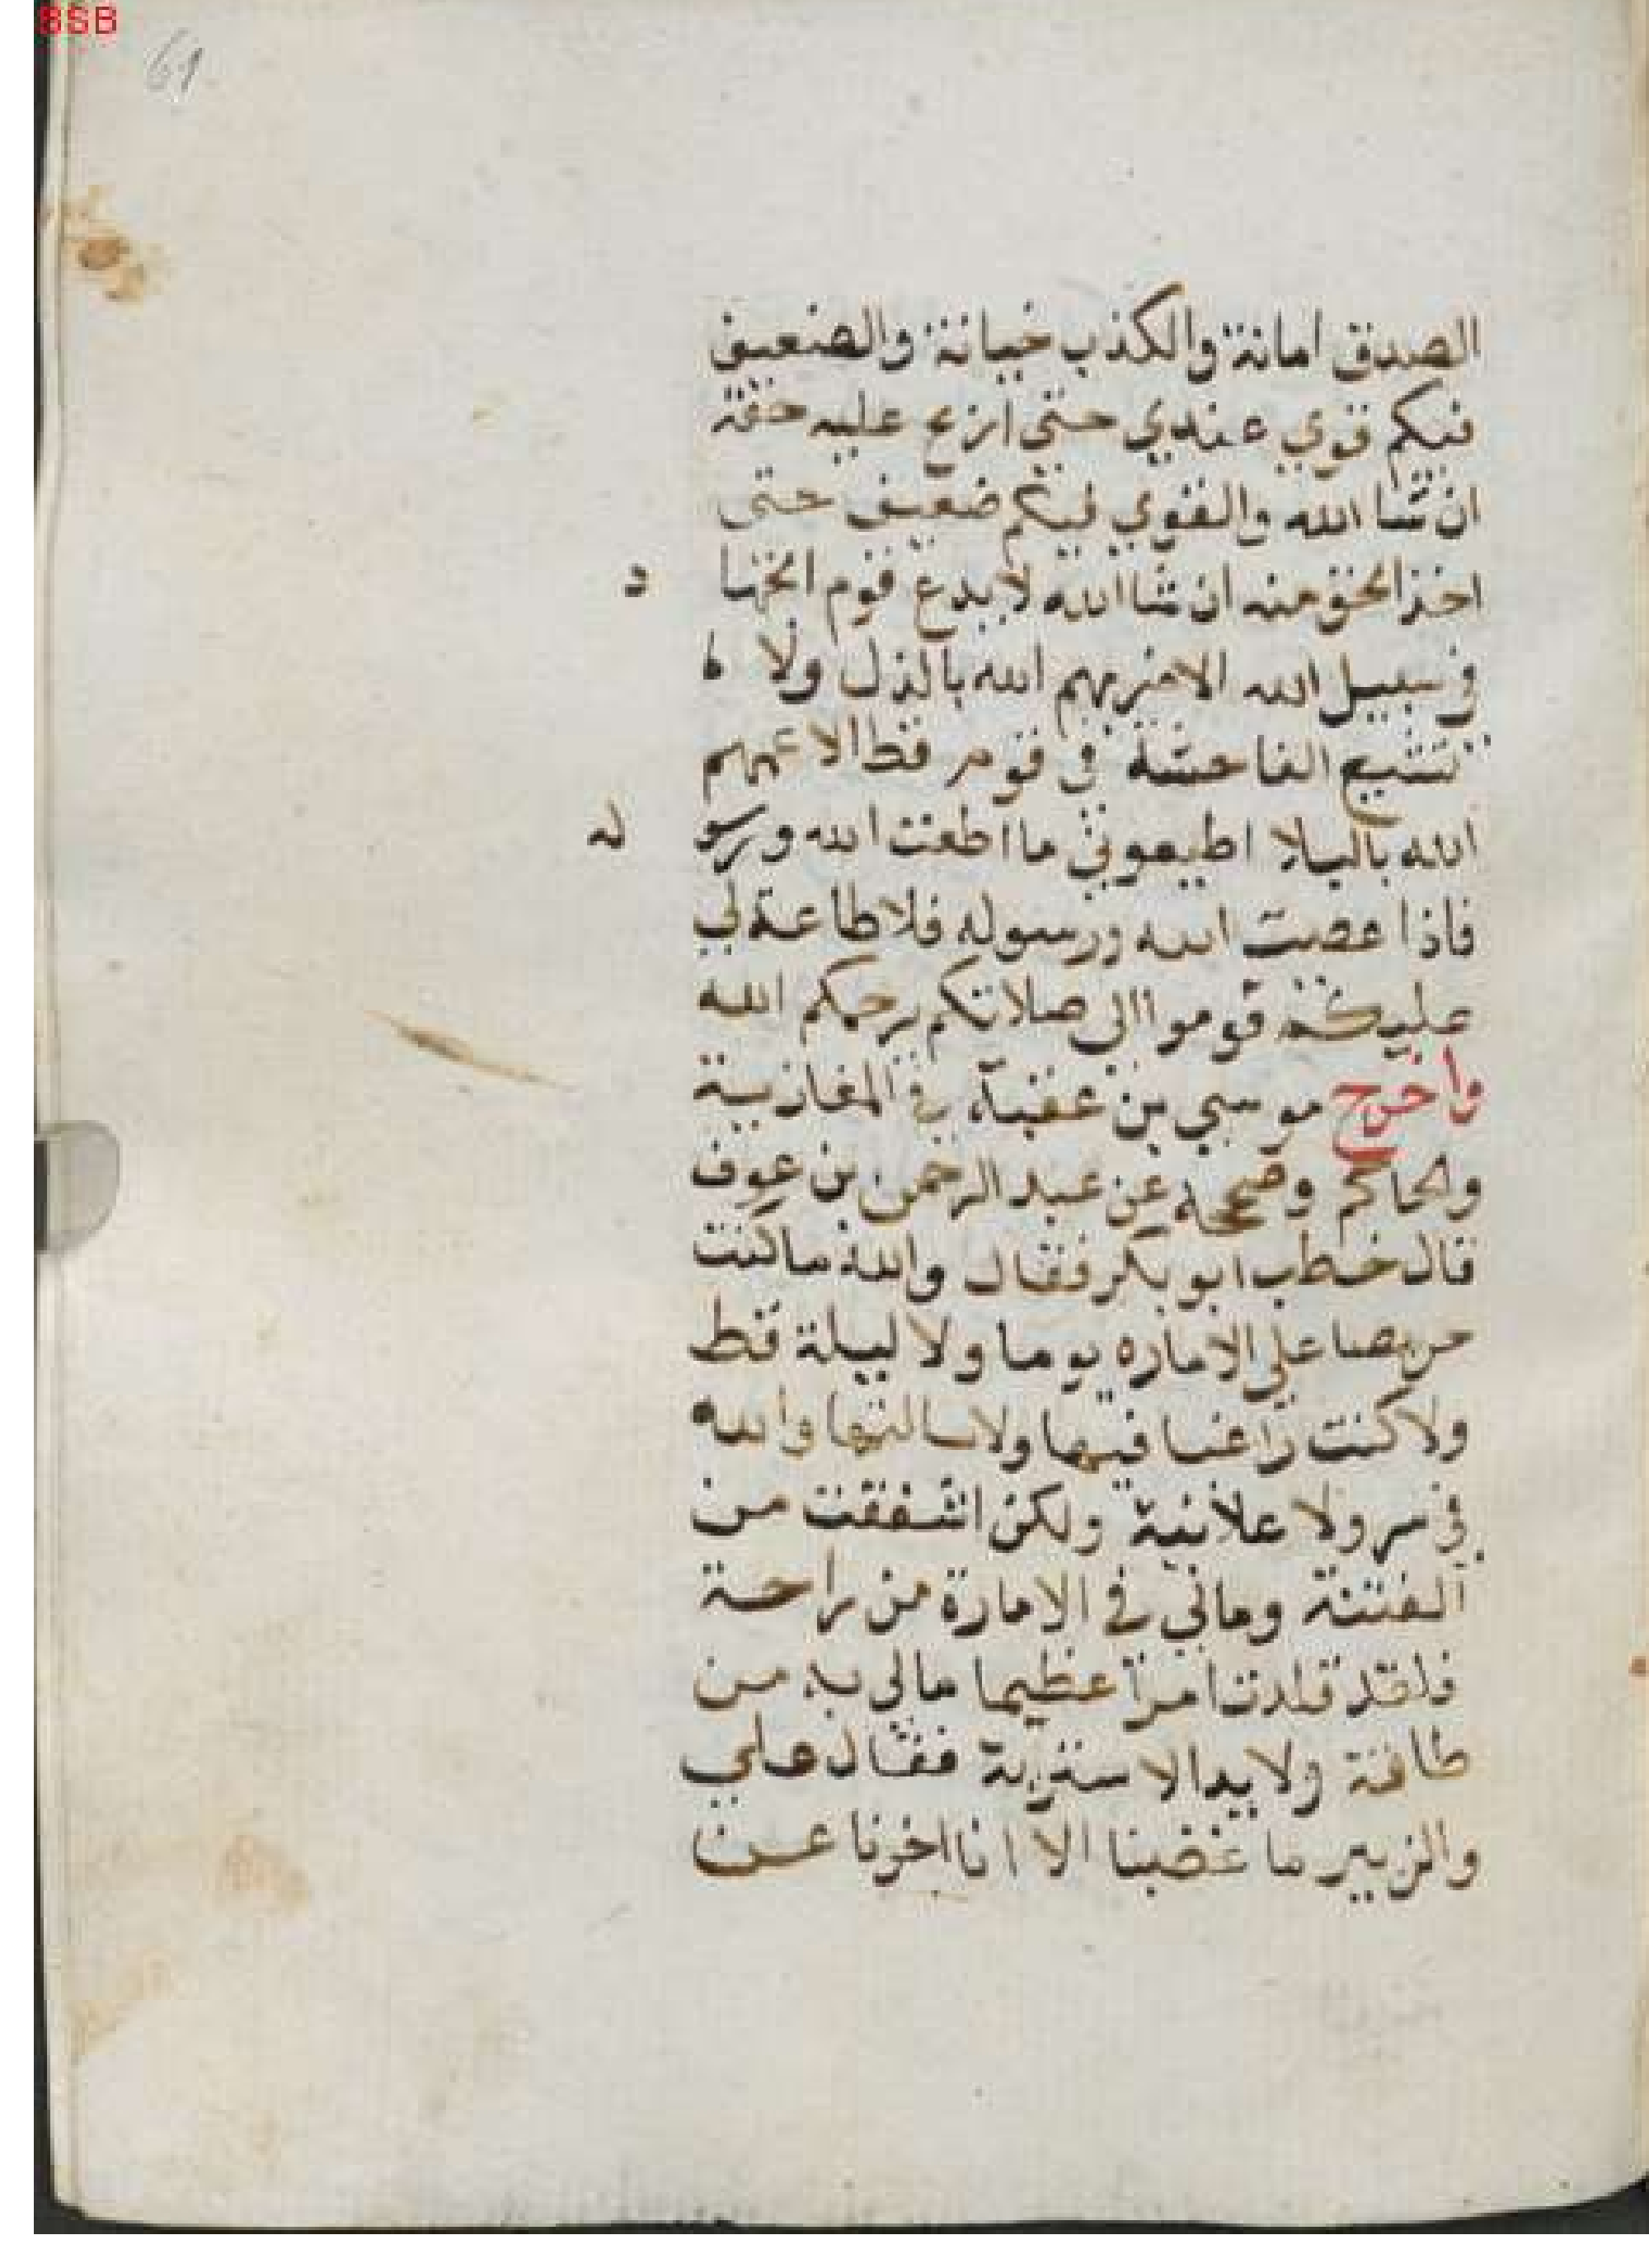 BSB
61
الصدق امانة والكذب خيانة والضعيف
فيكم قوي عندي حتى ازيح عليه حقه
ان شا الله والقوي فيكم ضعيف حتى
اخذ الحق منه ان شا الله لا يدع قوم الجها د
في سبيل الله الا ضربهم الله بالذل ولا
تشيع الفاحشة في قوم قط الا عمهم
الله بالبلا اطيعوني ما اطعت الله ورسو له
فاذا عصيت الله ورسوله فلا طاعة لي
عليكم قوموا الى صلاتكم يرحمكم الله
واخرج موسي بن عقبة في المغازية
والحاكم وصححه عن عبد الرحمن بن عوف
قال خطب ابو بكر فقال والله ما كنت
حريصا علي الاماره يوما ولا ليلة قط
ولا كنت راغبا فيها ولا سالتها والله
في سر ولا علانية ولكن اشفقت من
الفتنة وماني في الامارة من راحة
فلقد قلدت امرا عظيما مالي به من
طاقة ولا يد الا بتقوية فقال علي
والزبير ما غضبنا الا انا اخرنا عن